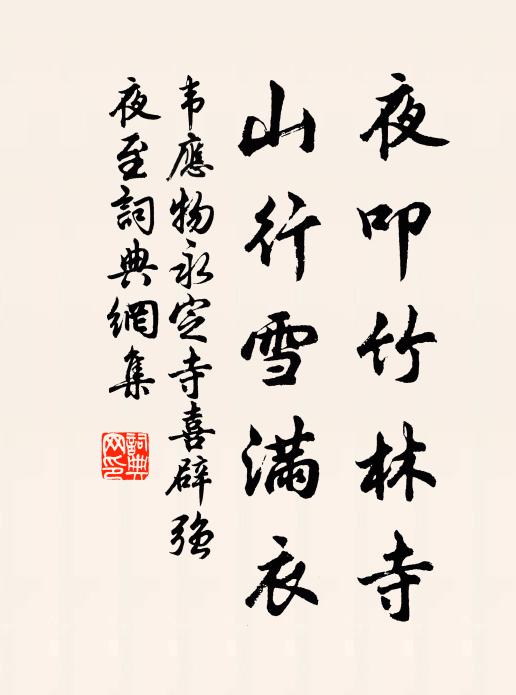 夜叩竹林寺
山行雪滿衣
韦應物永定寺喜辟强
夜至詞典網集
詞典网印